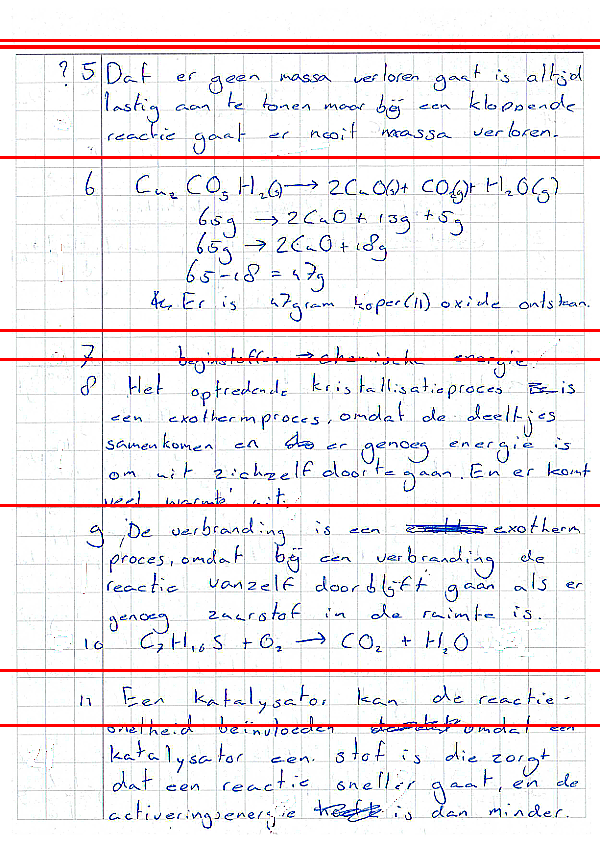 ? 5 Dat er geen massa verloren gaat is altijd
lastig aan te tonen maar bij een kloppende
reactie gaat er nooit massa verloren.
6 Cu₂ CO₅ H₂(s) → 2CuO(s) + CO₂(g) + H₂O(g)
65g → 2CuO + 13g + 5g
65g → 2CuO + 18g
65 - 18 = 47g
Er is 47gram koper(II) oxide ontstaan.
7 beginstoffen → chemische energie.
8 Het optredende kristallisatieproces is
een exothermproces, omdat de deeltjes
samenkomen en er genoeg energie is
om uit zichzelf door te gaan. En er komt
veel warmte uit.
9 De verbranding is een exotherm
proces, omdat bij een verbranding de
reactie vanzelf door blijft gaan als er
genoeg zuurstof in de ruimte is.
10 C₇H₁₆S + O₂ → CO₂ + H₂O
11 Een katalysator kan de reactie-
snelheid beïnvloeden omdat een
katalysator een stof is die zorgt
dat een reactie sneller gaat, en de
activeringsenergie is dan minder.